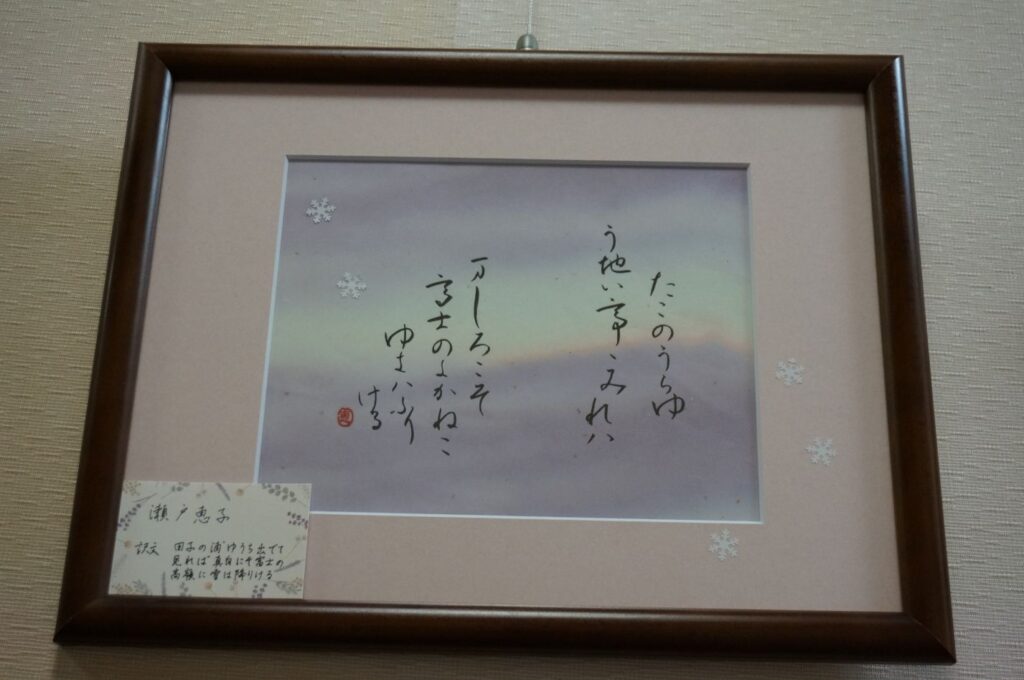 たこのうらゆ
う地い亭こみれハ
万しろこそ
富士のよかねこ
ゆきハふり
ける
瀬戸恵子
訳文 田子の浦ゆうち出でて
見れば真白にぞ富士の
高嶺に雪は降りける